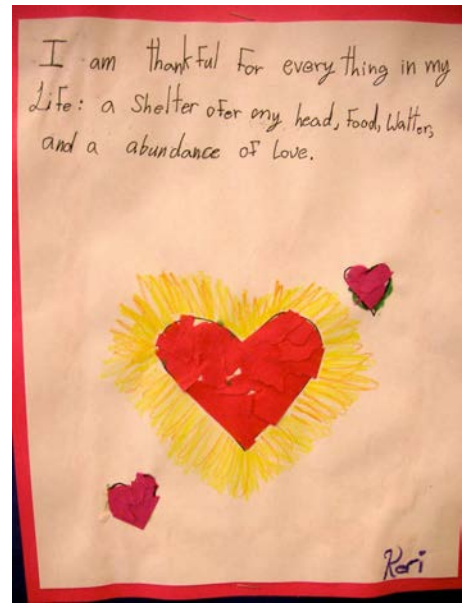 I am thankful for every thing in my
Life: a Shelter ofer my head, Food, Watter,
and a abundance of Love.
Kori